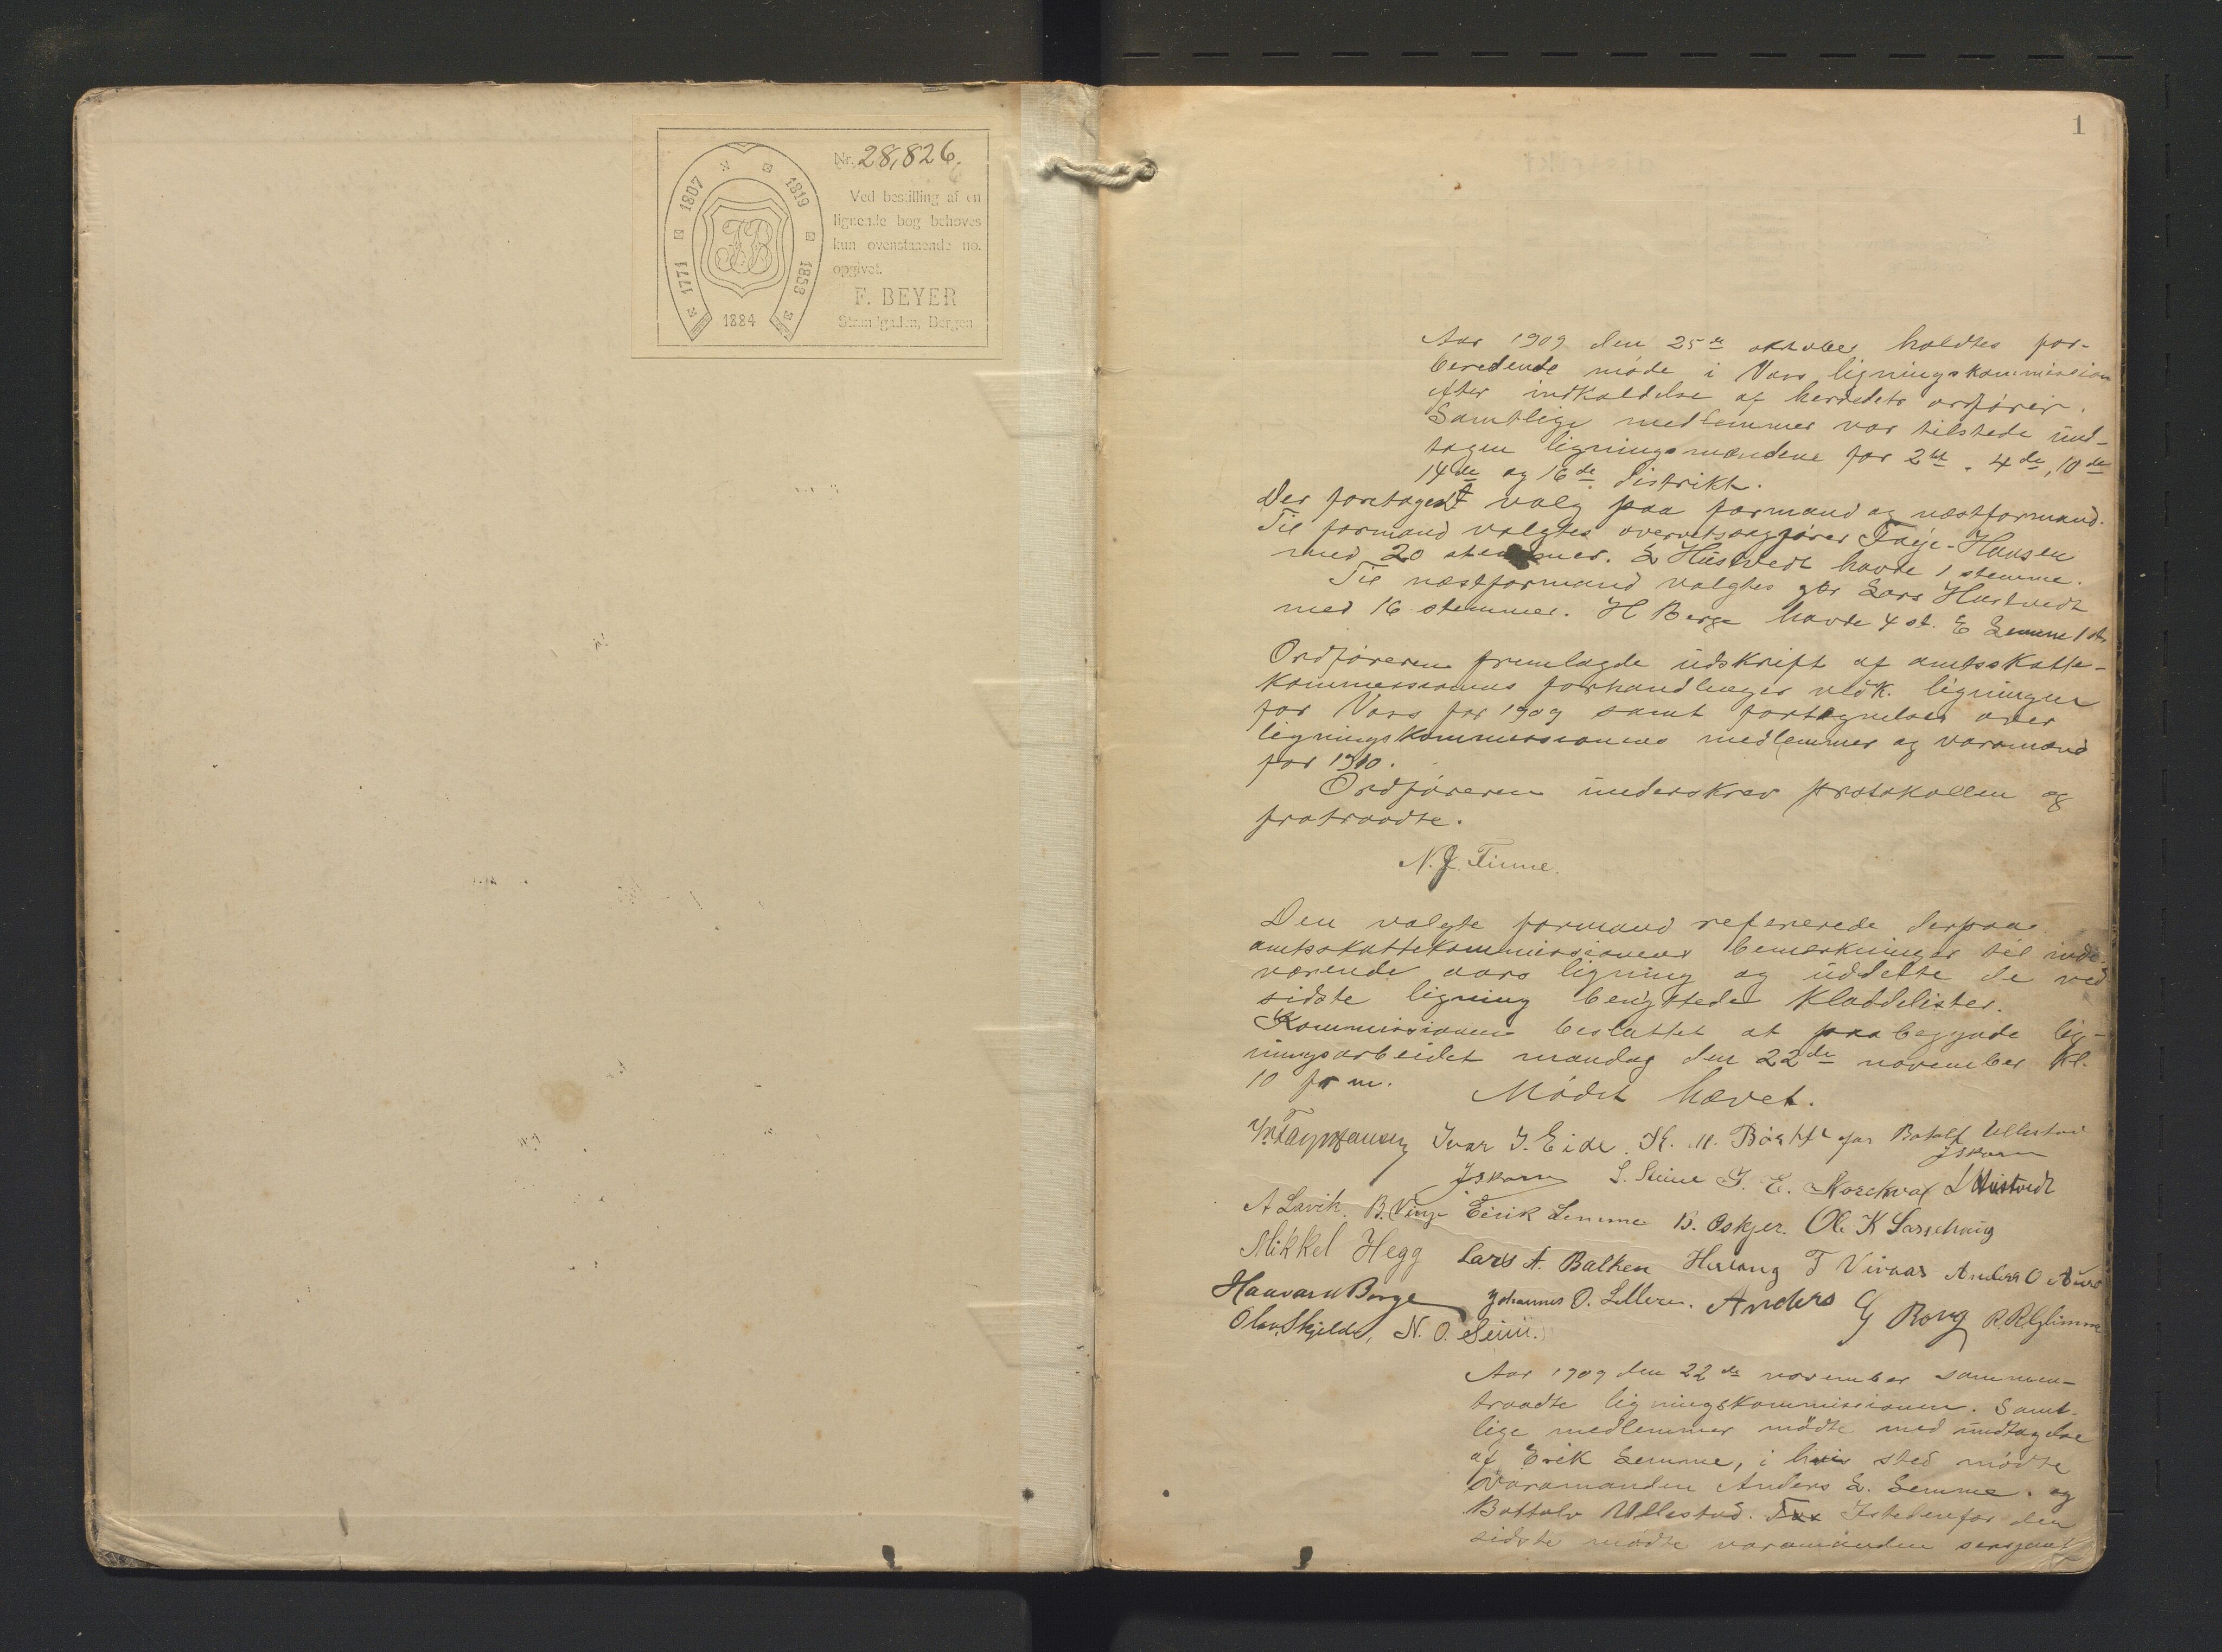 Nr. 28,826.
Ved bestilling af en
lignende bog behøves
kun ovenstaaende no.
opgivet.
F. BEYER
Strandgaden, Bergen
1771 1807 1819 1853
1884
FB
1
Aar 1909 den 25de oktober holdtes for-
beredende møde i Voss ligningskommission
efter indkaldelse af herredets ordfører.
Samtlige medlemmer var tilstede und-
tagen ligningsmændene for 2det, 4de, 10de
14de og 16de distrikt.
Der foretoges valg paa formand og næstformand.
Til formand valgtes overretssagfører Faye-Hansen
med 20 stemmer. L Hustvedt havde 1 stemme.
Til næstformand valgtes gbr Lars Hustvedt
med 16 stemmer. H Berge havde 4 st. E Lemme 1 st.
Ordføreren fremlagde udskrift af amtsskatte-
kommissionens forhandlinger vedk. ligningen
for Voss for 1909 samt fortegnelser over
ligningskommissionens medlemmer og varamænd
for 1910.
Ordføreren underskrev protokollen og
fratraadte.
N. J. Finne.
Den valgte formand refererede derpaa
amtsskattekommissionens bemerkninger til inde-
værende aars ligning og uddelte de ved
sidste ligning benyttede kladdelister.
Kommissionen besluttet at paabegynde lig-
ningsarbeidet mandag den 22de november kl.
10 form. Mødet hævet.
Ivar J. Eide. K. for Botolf Ullestad
L. Seim L Hustvedt
A Lavik. B. Vinje Eirik Lemme B. Oskjer. Ole K
Mikkel Hegg Lars A. Balken T Vivaas Anders O
Haavard Berge Johannes O. Anders G Rong
Olav Skjelde, N. O. Seim.
Aar 1909 den 22de november sammen-
traadte ligningskommissionen. Samt-
lige medlemmer mødte med undtagelse
af Erik Lemme, i hvis sted mødte
varamanden Anders L. Lemme. og
Bottolv Ullestad. Istedenfor den
sidste mødte varamanden sersjant